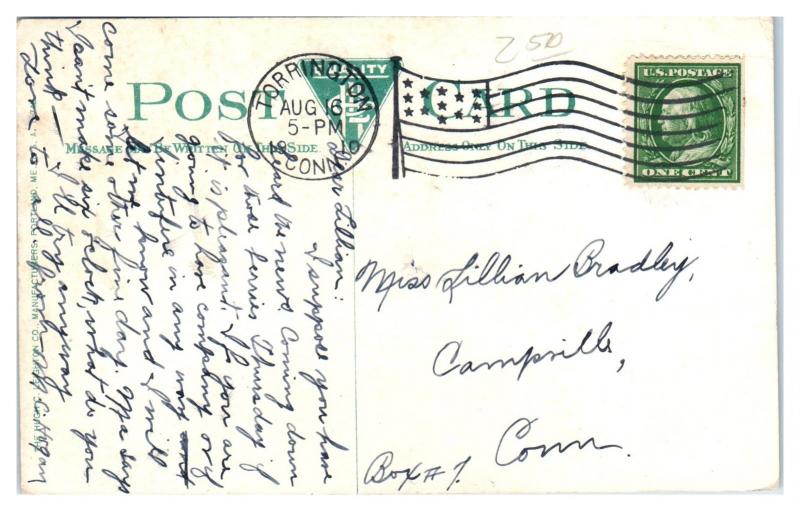 2 50
POST CARD
QUALITY
TORRINGTON
AUG 16
5-PM
10
CONN.
U.S. POSTAGE
ONE CENT
MESSAGE MAY BE WRITTEN ON THIS SIDE.
ADDRESS ONLY ON THIS SIDE
Dear Lillian:
I suppose you have
heard the news. Coming down
for those berries Thursday if
it is pleasant. If you are
going to have company or
interfere in any way
let us know and I will
come some other fine day. Mpa says
I can't make six o'clock, what do you
think — I'll try anyway
Love to all from
Miss Lillian Bradley,
Campville,
Conn.
Box # 7.
THE HUGH C. LEIGHTON CO., MANUFACTURERS, PORTLAND, ME., U.S.A.